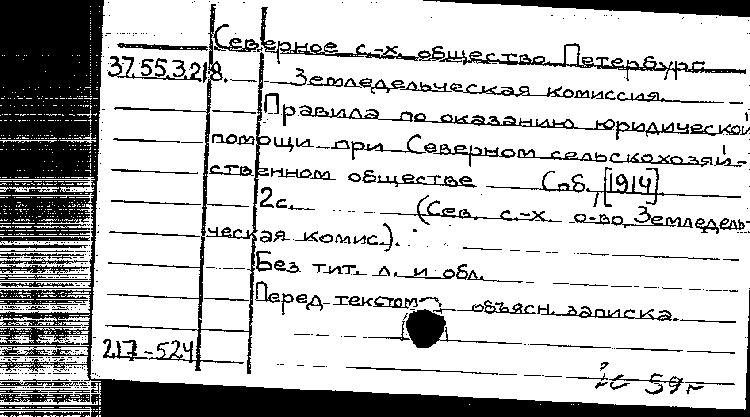 Северное с.-х. общество Петербург
37.55.3.218. Земледельческая комиссия.
Правила по оказанию юридической
помощи при Северном сельскохозяй-
ственном обществе Спб., [1914].
2с. (Сев. с.-х. о-во Земледель-
ческая комис.).
Без тит. л. и обл.
Перед текстом объясн. записка.
217-524
59г